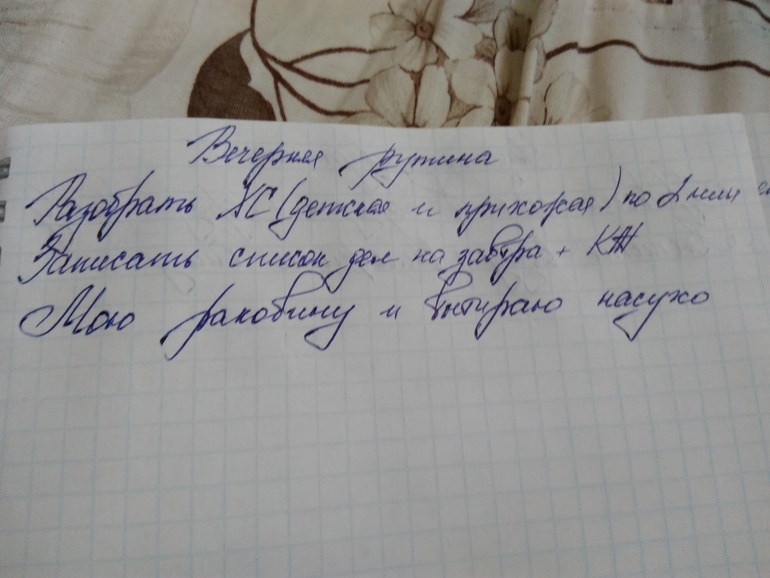 Вечерняя рутина
Разобрать ХС (детская и прихожая) по 2 мин
Записать список дел на завтра + КЖ
Мою раковину и вытираю насухо